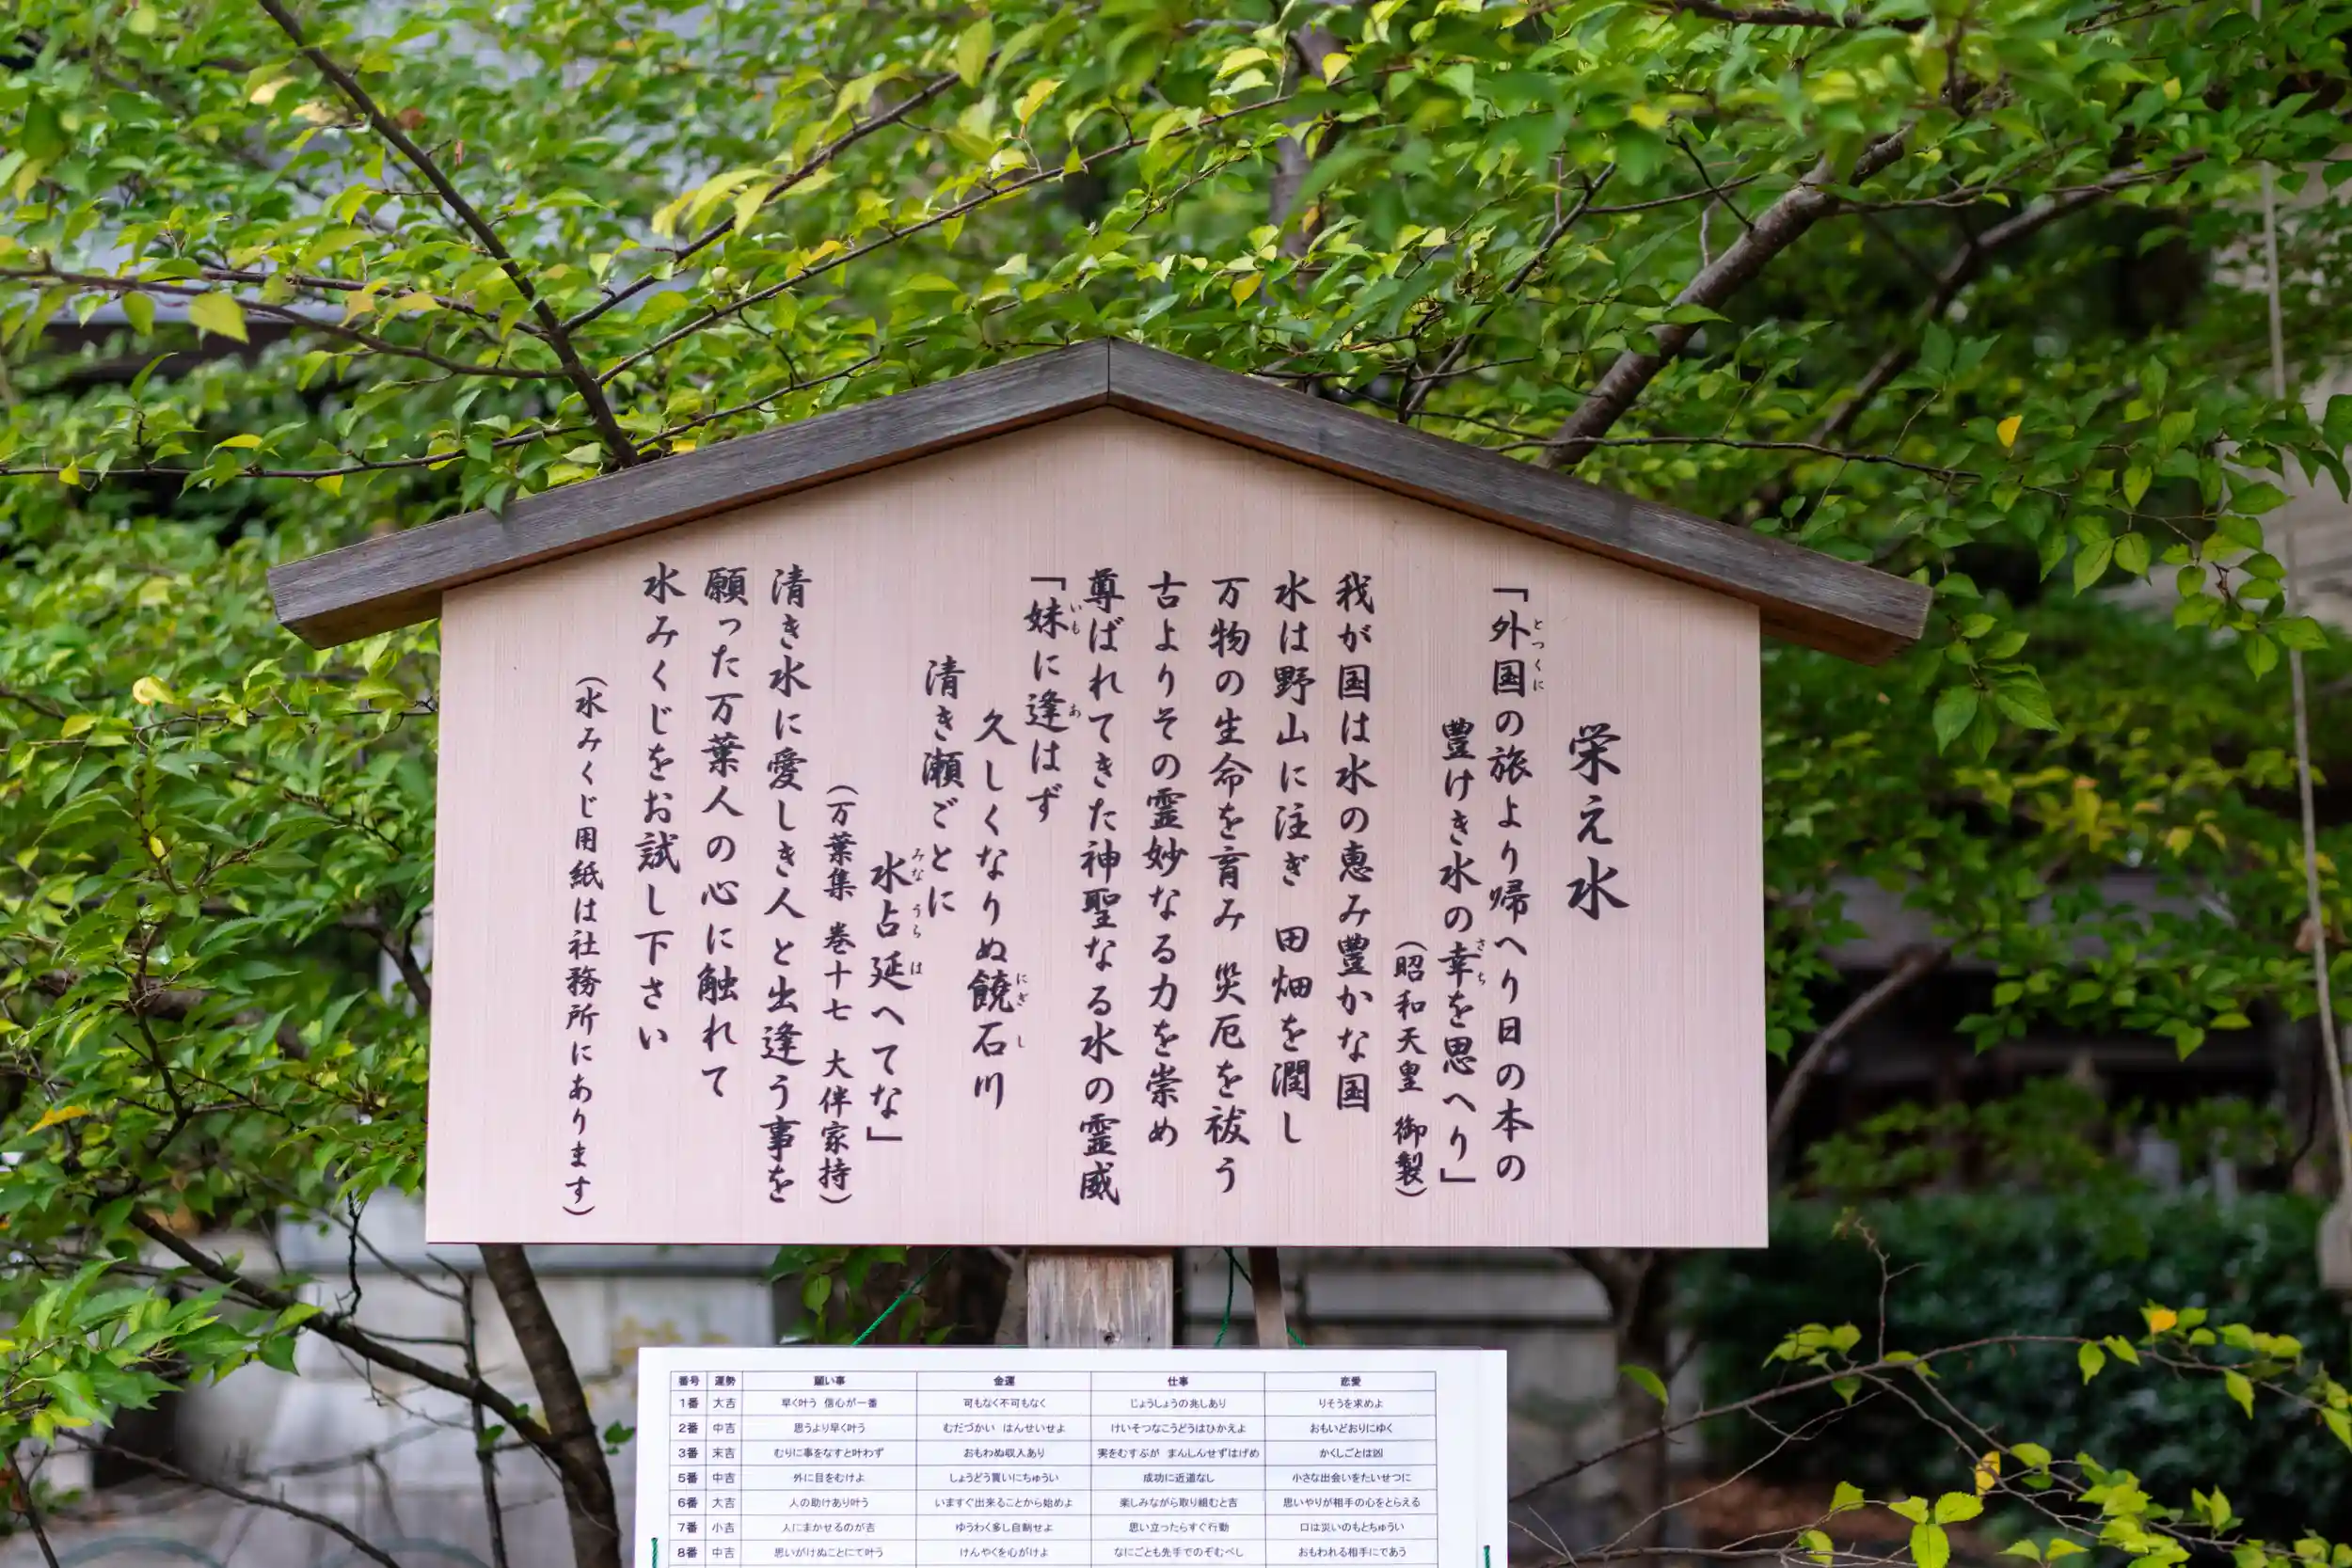 栄え水
「外国の旅より帰へり日の本の
とつくに
豊けき水の幸を思へり」
さち
(昭和天皇 御製)
我が国は水の恵み豊かな国
水は野山に注ぎ 田畑を潤し
万物の生命を育み 災厄を祓う
古よりその霊妙なる力を崇め
尊ばれてきた神聖なる水の霊威
「妹に逢はず
いも あ
久しくなりぬ饒石川
にぎ し
清き瀬ごとに
水占延へてな」
みな うら は
(万葉集 巻十七 大伴家持)
清き水に愛しき人と出逢う事を
願った万葉人の心に触れて
水みくじをお試し下さい
(水みくじ用紙は社務所にあります)
番号 運勢 願い事 金運 仕事 恋愛
1番 大吉 早く叶う 信心が一番 可もなく不可もなく じょうしょうの兆しあり りそうを求めよ
2番 中吉 思うより早く叶う むだづかい はんせいせよ けいそつなこうどうはひかえよ おもいどおりにゆく
3番 末吉 むりに事をなすと叶わず おもわぬ収入あり 実をむすぶが まんしんせずはげめ かくしごとは凶
5番 中吉 外に目をむけよ しょうどう買いにちゅうい 成功に近道なし 小さな出会いをたいせつに
6番 大吉 人の助けあり叶う いますぐ出来ることから始めよ 楽しみながら取り組むと吉 思いやりが相手の心をとらえる
7番 小吉 人にまかせるのが吉 ゆうわく多し自制せよ 思い立ったらすぐ行動 口は災いのもとちゅうい
8番 中吉 思いがけぬことにて叶う けんやくを心がけよ なにごとも先手でのぞむべし おもわれる相手にであう